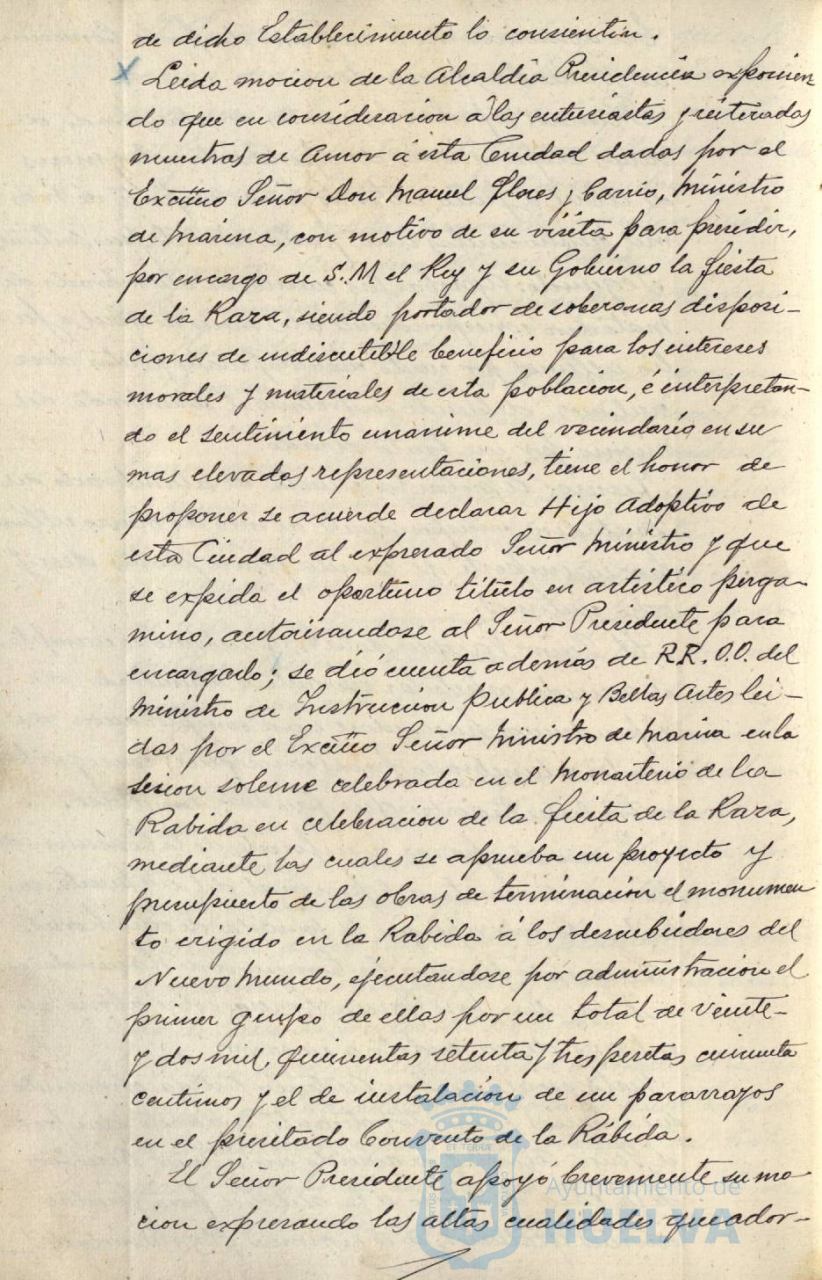 de dicho Establecimiento lo consientan.
Leida mocion de la Alcaldia Presidencia exponien
do que en consideracion á las entusiastas y reiteradas
muestras de Amor á esta Ciudad dadas por el
Excmo Señor Don Manuel Flores y Carrio, Ministro
de Marina, con motivo de su visita para presidir,
por encargo de S.M el Rey y su Gobierno la fiesta
de la Raza, siendo portador de soberanas disposi-
ciones de indiscutible beneficio para los intereses
morales y materiales de esta poblacion, é interpretan-
do el sentimiento unanime del vecindario en su
mas elevadas representaciones, tiene el honor de
proponer se acuerde declarar Hijo Adoptivo de
esta Ciudad al expresado Señor Ministro y que
se expida el oportuno titulo en artistico perga-
mino, autorizandose al Señor Presidente para
encargarlo; se dió cuenta además de R.R.O.O. del
Ministro de Instruccion publica y Bellas Artes lei-
das por el Excmo Señor Ministro de Marina en la
sesion solemne celebrada en el Monasterio de la
Rabida en celebracion de la fiesta de la Raza,
mediante las cuales se aprueba un proyecto y
presupuesto de las obras de terminación el monumen
to erigido en la Rabida á los descubridores del
Nuevo Mundo, ejecutandose por administracion el
primer grupo de ellas por un total de veinte-
y dos mil quinientas setenta y tres pesetas cincuenta
centimos y el de instalación de un pararrayos
en el precitado Convento de la Rábida.
El Señor Presidente apoyó brevemente su mo
cion expresando las altas cualidades que ador-
Ayuntamiento de
HUELVA